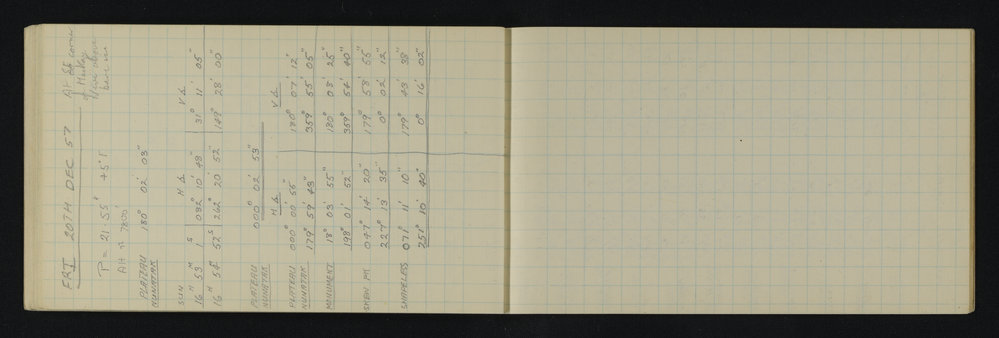 FRI 20TH DEC 57 At SE corner
of Huxley
above
P = 21.55 +5°F
AH = 7800'
PLATEAU 180° 02' 03"
NUNATAK
SUN H∆ V∆
16H 53M 1S 082° 10' 48" 31° 11' 05"
16H 54M 52S 262° 20' 52" 149° 28' 00"
PLATEAU 000° 02' 53"
NUNATAK
H∆ V∆
PLATEAU 000° 00' 56" 180° 07' 12"
NUNATAK 179° 59' 43" 359° 55' 05"
MONUMENT 18° 03' 55" 180° 03' 25"
198° 01' 52" 359° 54' 40"
SKEN PK 047° 14' 20" 179° 58' 55"
227° 13' 35" 0° 02' 12"
SHAPELESS 071° 11' 10" 179° 43' 38"
251° 10' 40" 0° 16' 02"